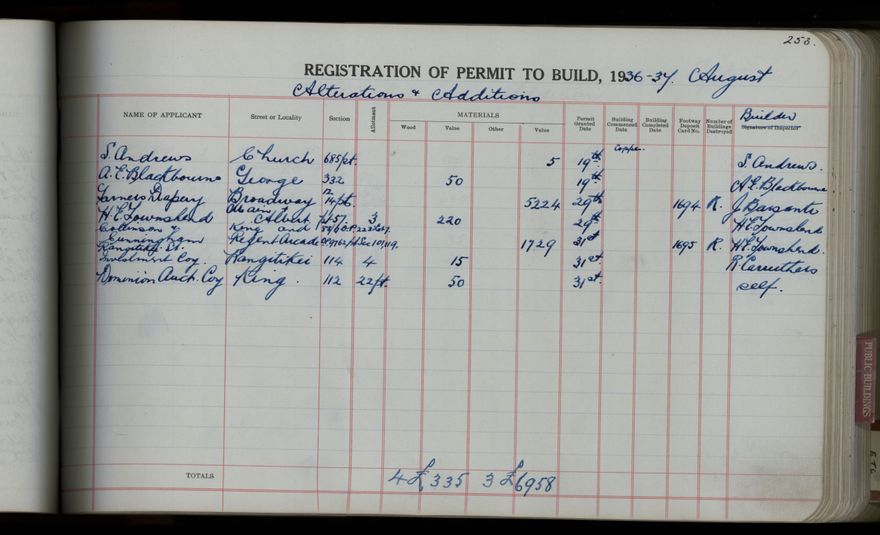 253.
REGISTRATION OF PERMIT TO BUILD, 1936-37. August
Alterations & Additions
NAME OF APPLICANT Street or Locality Section Allotment MATERIALS Wood Value Other Value Permit Granted Date Building Commenced Date Building Completed Date Footway Deposit Card No. Number of Buildings Destroyed Builder Signature of Inspector
Copper.
S. Andrews Church 685/pt. 5 19th S. Andrews.
A. E. Blackbourne George 332 50 19th A. E. Blackbourne
Farmers Drapery Broadway 5224 29th 1694 R. J. Barsanti
H. E. Townshend Albert 457. 3 220 29th H E Townshend
Collinson & King and
Cunningham Regent Arcade 1729 31st 1695 R. H E Townshend.
Rangitikei St.
Investment Coy. Rangitikei 114 4. 15 31st R. Carruthers
Dominion Auct. Coy King. 112 22/pt. 50 31st. self.
TOTALS 4 £335 3 £6958
PUBLIC BUILDINGS